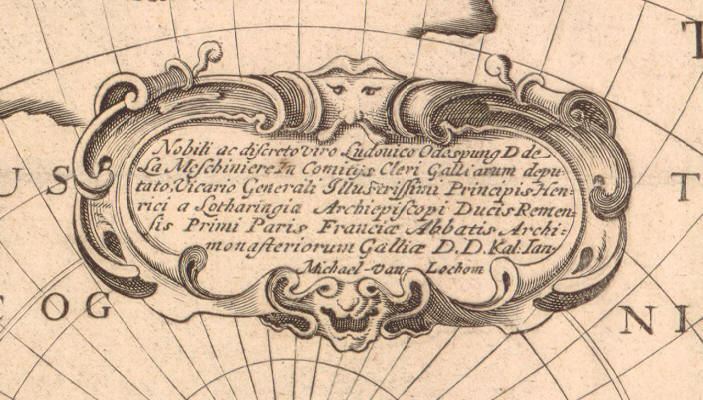 Nobili ac discreto viro Ludovico Odespung D de
La Meschiniere In Comitijs Cleri Galliarum depu-
tato, Vicario Generali Illustrissimi Principis Hen-
rici a Lotharingia Archiepiscopi Ducis Remen-
sis Primi Paris Franciæ Abbatis Archi-
monasteriorum Galliæ D. D. Kal: Ian.
Michael van Lochom
U S
T
C O G
N I